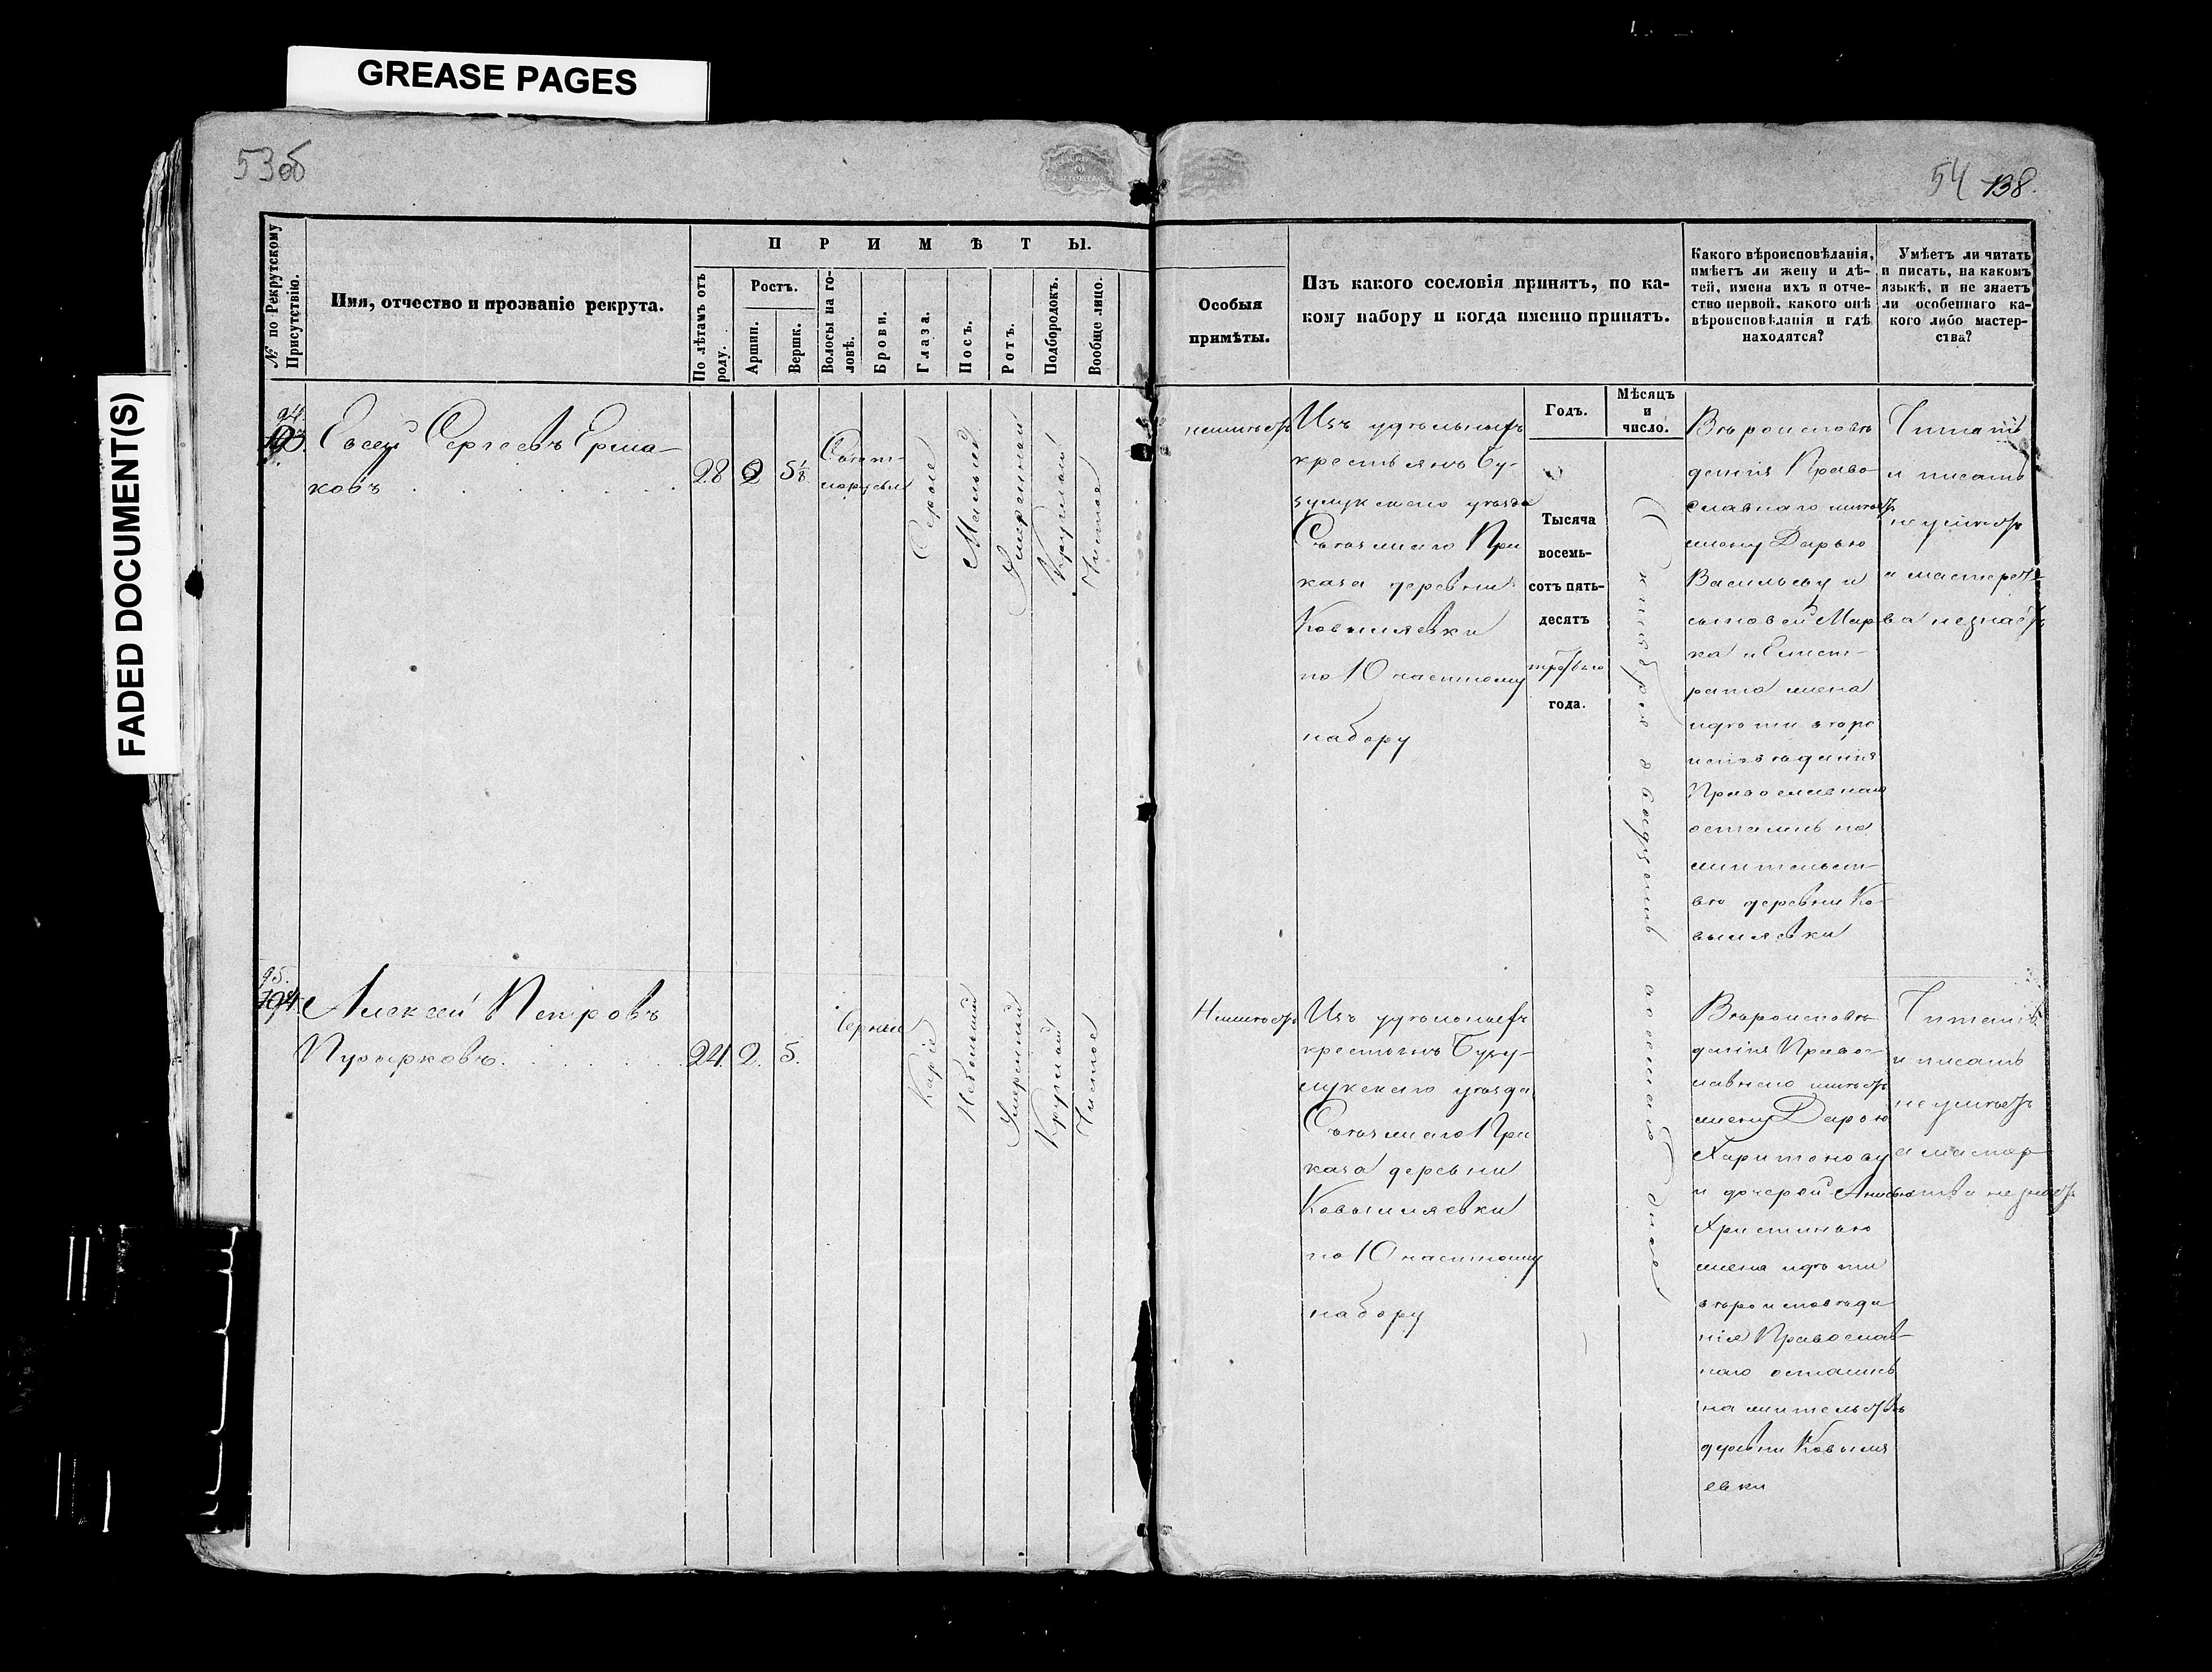 GREASE PAGES
FADED DOCUMENT(S)
53об
54 138.
№ по Рекрутскому Присутствію.
Имя, отчество и прозваніе рекрута.
ПРИМѢТЫ.
По лѣтамъ отъ роду.
Ростъ.
Аршин.
Вершк.
Волосы на головѣ.
Брови.
Глаза.
Носъ.
Ротъ.
Подбородокъ.
Вообще лицо.
Особыя
примѣты.
Изъ какого сословія принятъ, по ка-
кому набору и когда именно принятъ.
Какого вѣроисповѣданія,
имѣетъ ли жену и дѣ-
тей, имена ихъ и отче-
ство первой, какого онѣ
вѣроисповѣданія и гдѣ
находятся?
Умѣетъ ли читать
и писать, на какомъ
языкѣ, и не знаетъ
ли особеннаго ка-
кого либо мастер-
ства?
Годъ.
Мѣсяцъ
и
число.
94.
Евсей Сергеевъ Ерма-
ковъ
28
2
5 1/8
Светло-
русыя
Серые
Малый
Умеренной
Круглой
Чистое
неимеетъ
Изъ удельныхъ
крестьянъ Бу-
зулукскаго уезда
Съезжаго При
каза деревни
Ковыляевки
по 10 частному
набору
Тысяча
восемь-
сотъ пять-
десятъ
третьяго
года.
Вероисповѣ
денія Право-
славнаго имеетъ
жену Дарью
Васильеву и
сыновей Мар
ка и Елист-
рата жена
идети веро
исповеденія
Православнаго
осталис на
жительст-
ве деревни Ко-
выляевки
Читать
и писать
неумеетъ
а мастерст-
ва незнаетъ
95.
194.
Алексей Петровъ
Пузырковъ.
24.
2.
5.
Черныя
Каріе
Небольшой
Умереный
Круглый
Чистое
Неимеетъ
Изъ удельныхъ
крестьянъ Бузу-
лукскаго уезда
Съезжаго При
каза деревни
Ковыляевки
по 10 частному
набору
Вероисповѣ
денія Правос-
лавнаго имеетъ
жену Дарью
Харитонову
и дочерей Анисью
Христинью
жена идети
вероисповеде
нія Православ-
наго осталис
на жительстве
деревни Ковыля
евки
Читать
и писать
неумеетъ
а мастер
ства незнаетъ